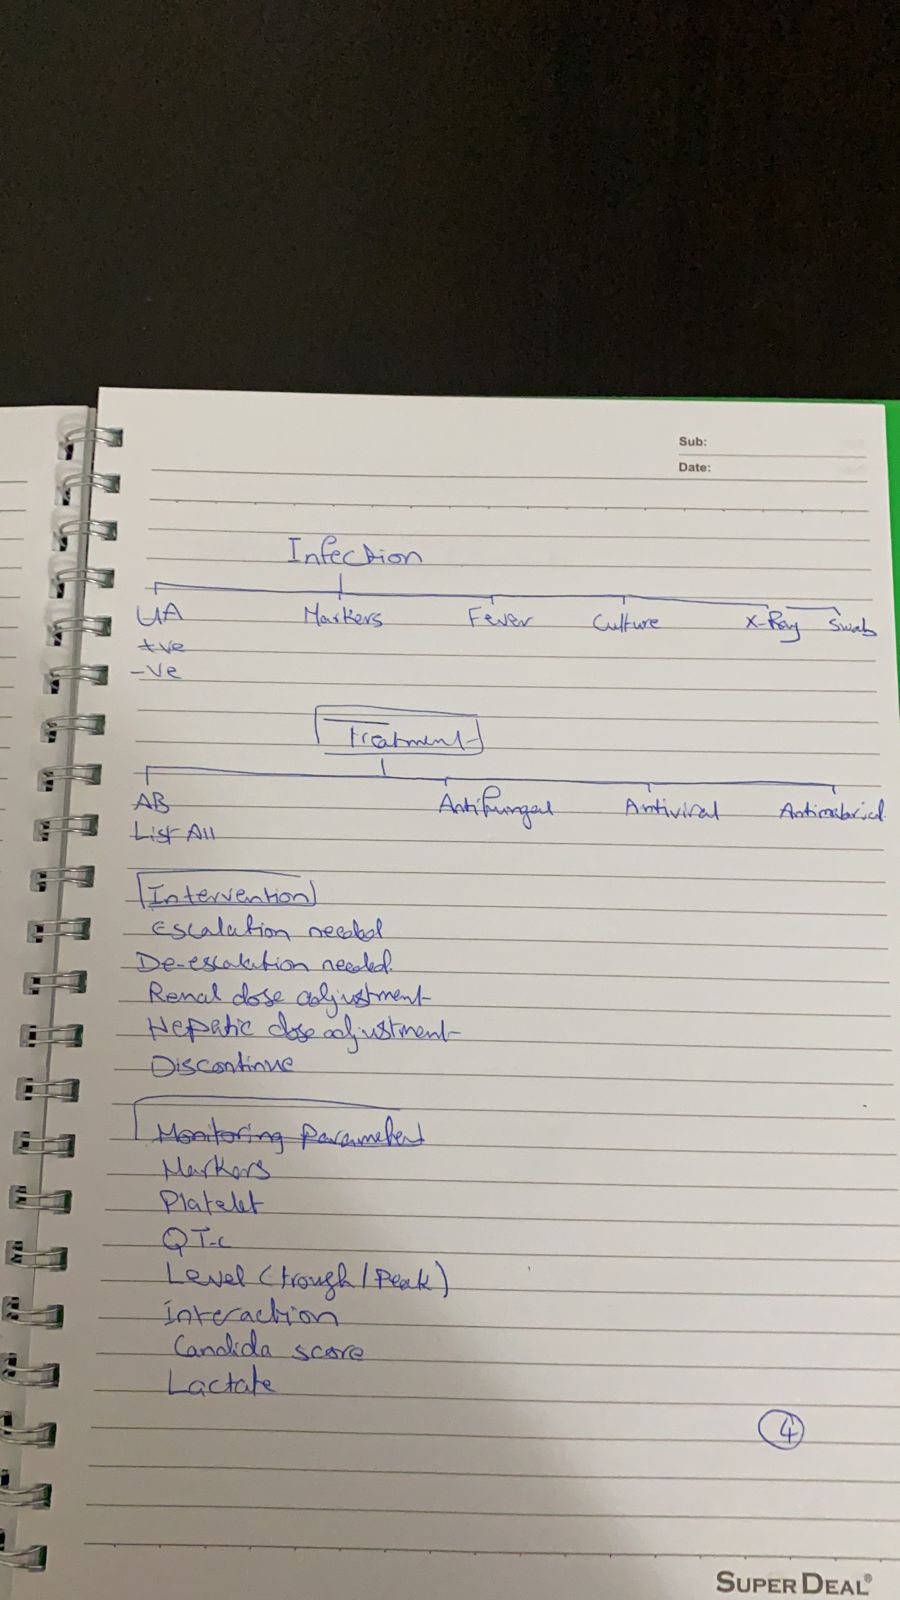 Sub:
Date:
Infection
UA Markers Fever Culture X-Ray Swab
+ve
-ve
Treatment
AB Antifungal Antiviral Antimalarial
List All
Intervention
Escalation needed
De-escalation needed.
Renal dose adjustment
Hepatic dose adjustment
Discontinue
Monitoring Parameter
Markers
Platelet
QT-c
Level (trough / Peak)
Interaction
Candida score
Lactate
4
SUPER DEAL®